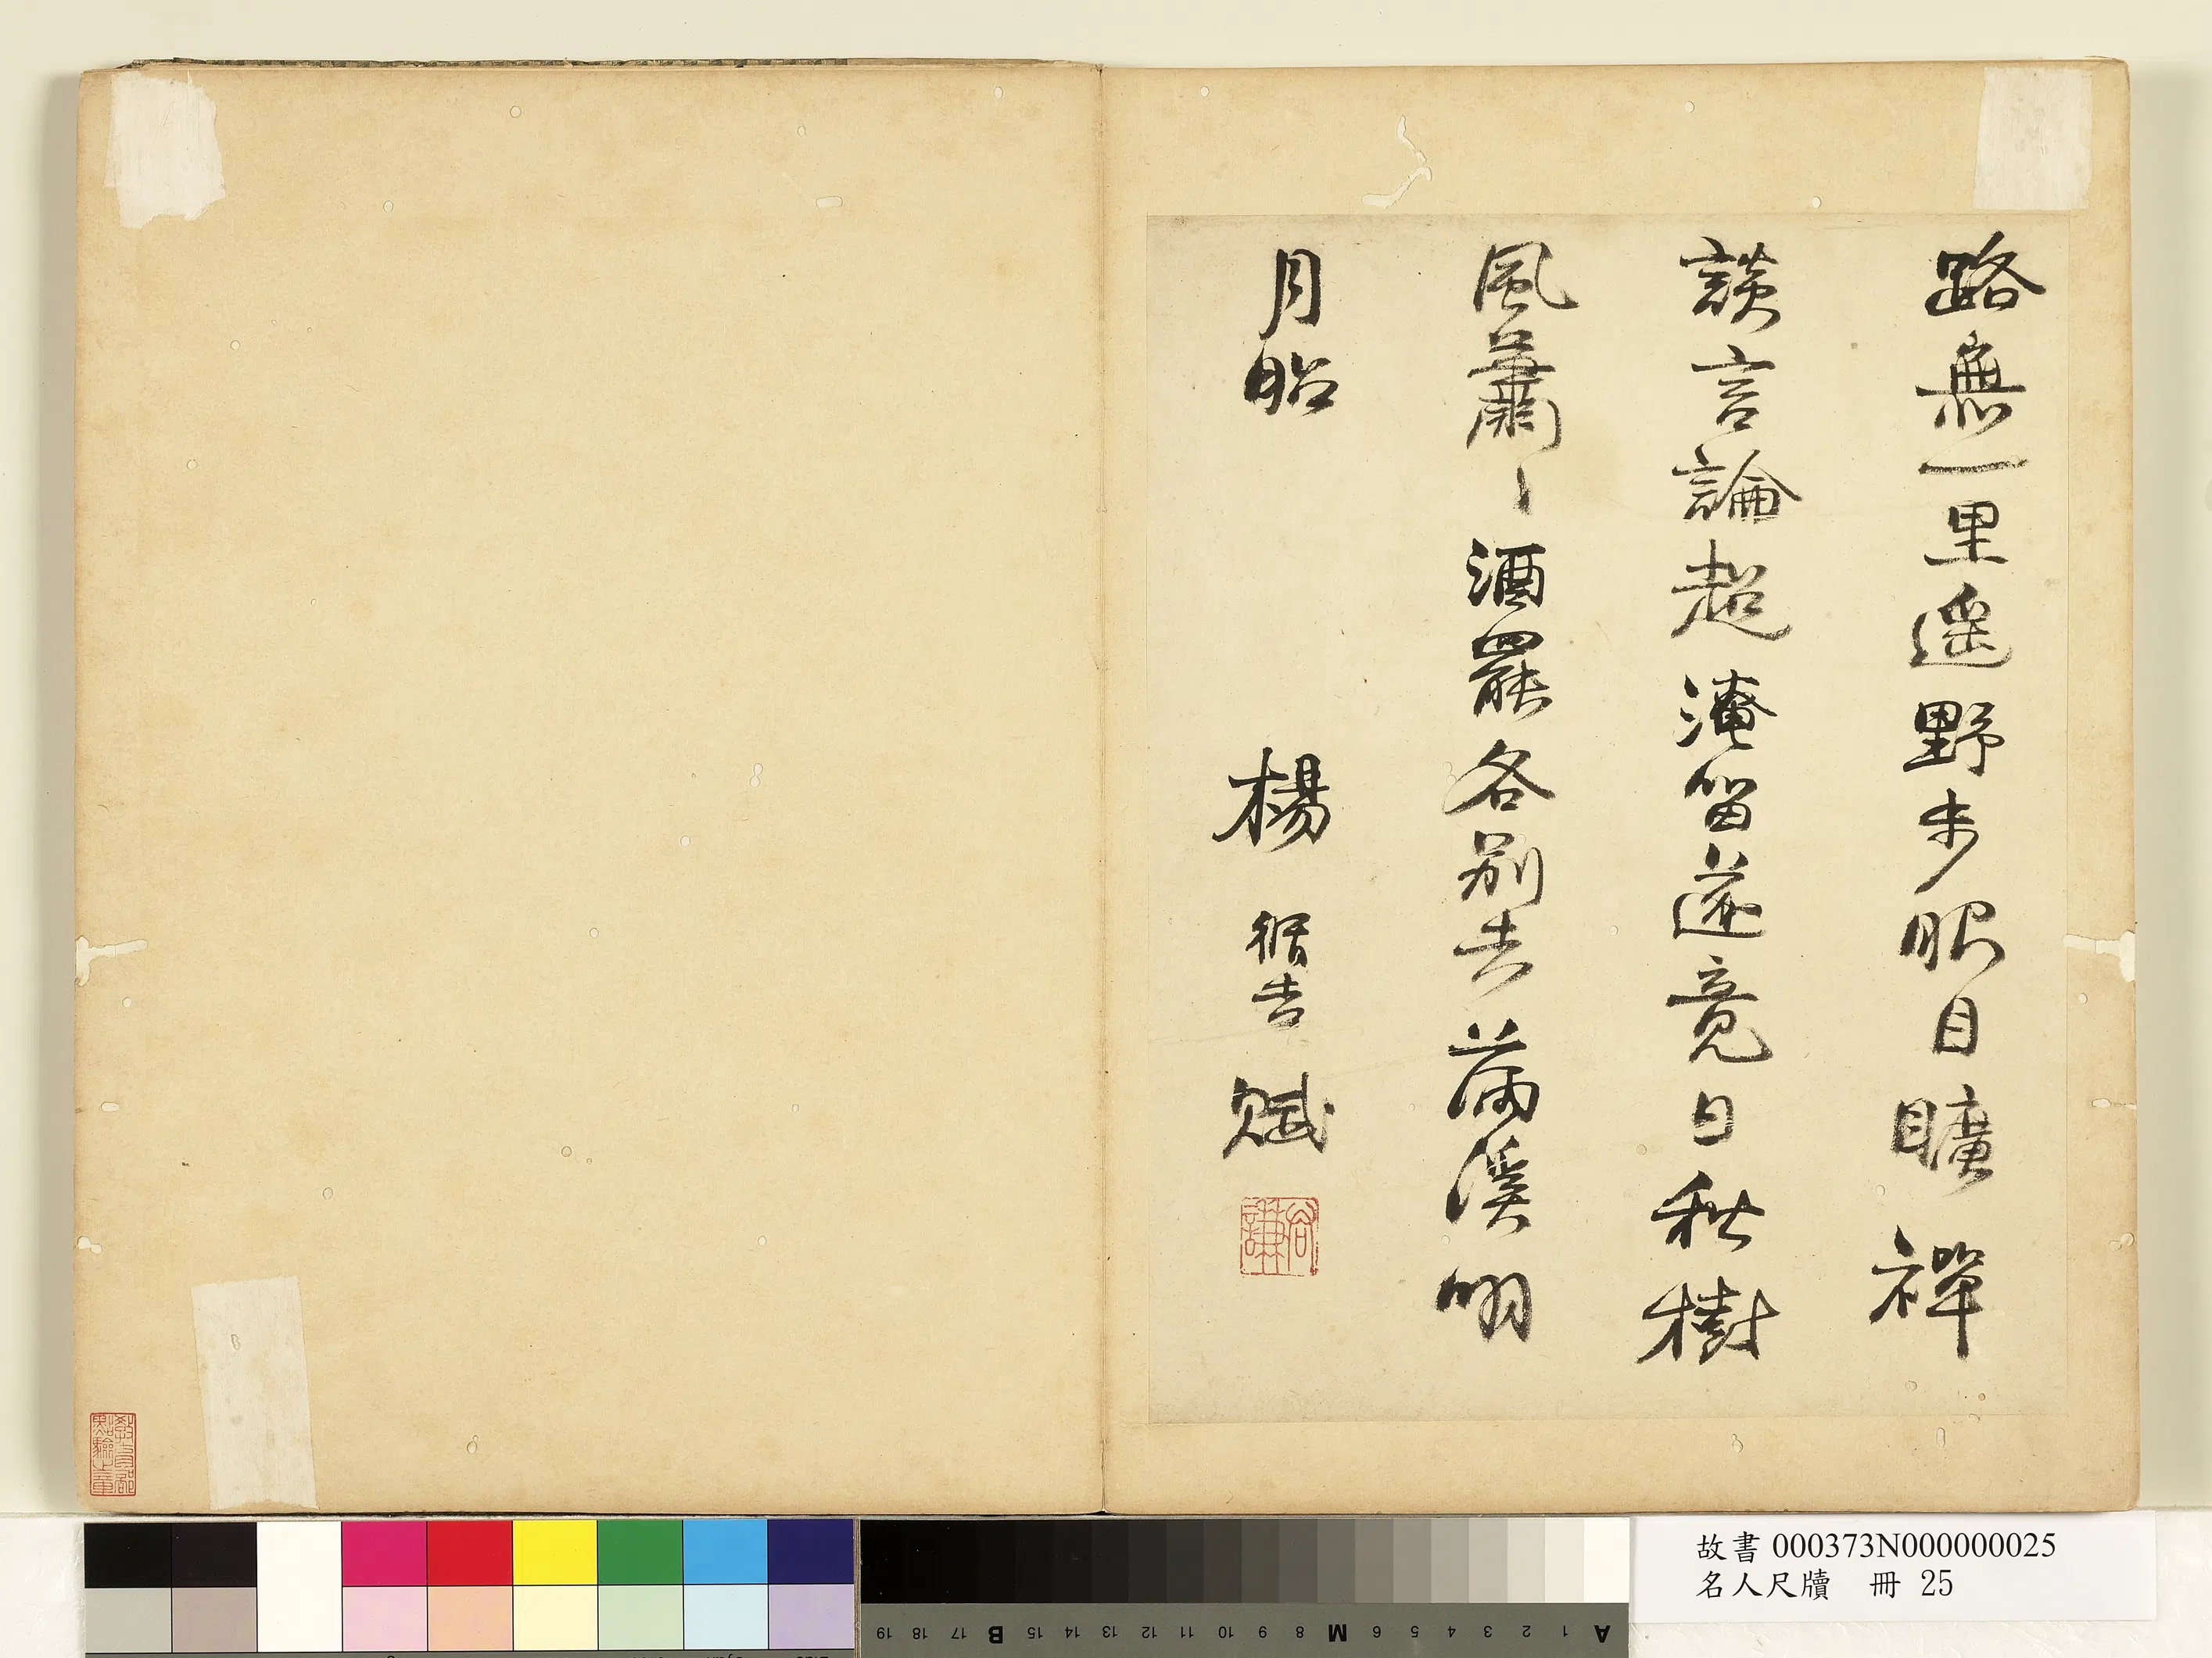 路無一里遥野步眀目曠禪
談言論超淹留遂竟日秋樹
風蕭〻酒罷各别去滿溪明
月昭
楊循吉賦
教育部點驗之章
故書 000373N000000025
名人尺牘 冊 25
A 1 2 3 4 5 6 M 8 9 10 11 12 13 14 15 B 17 18 19